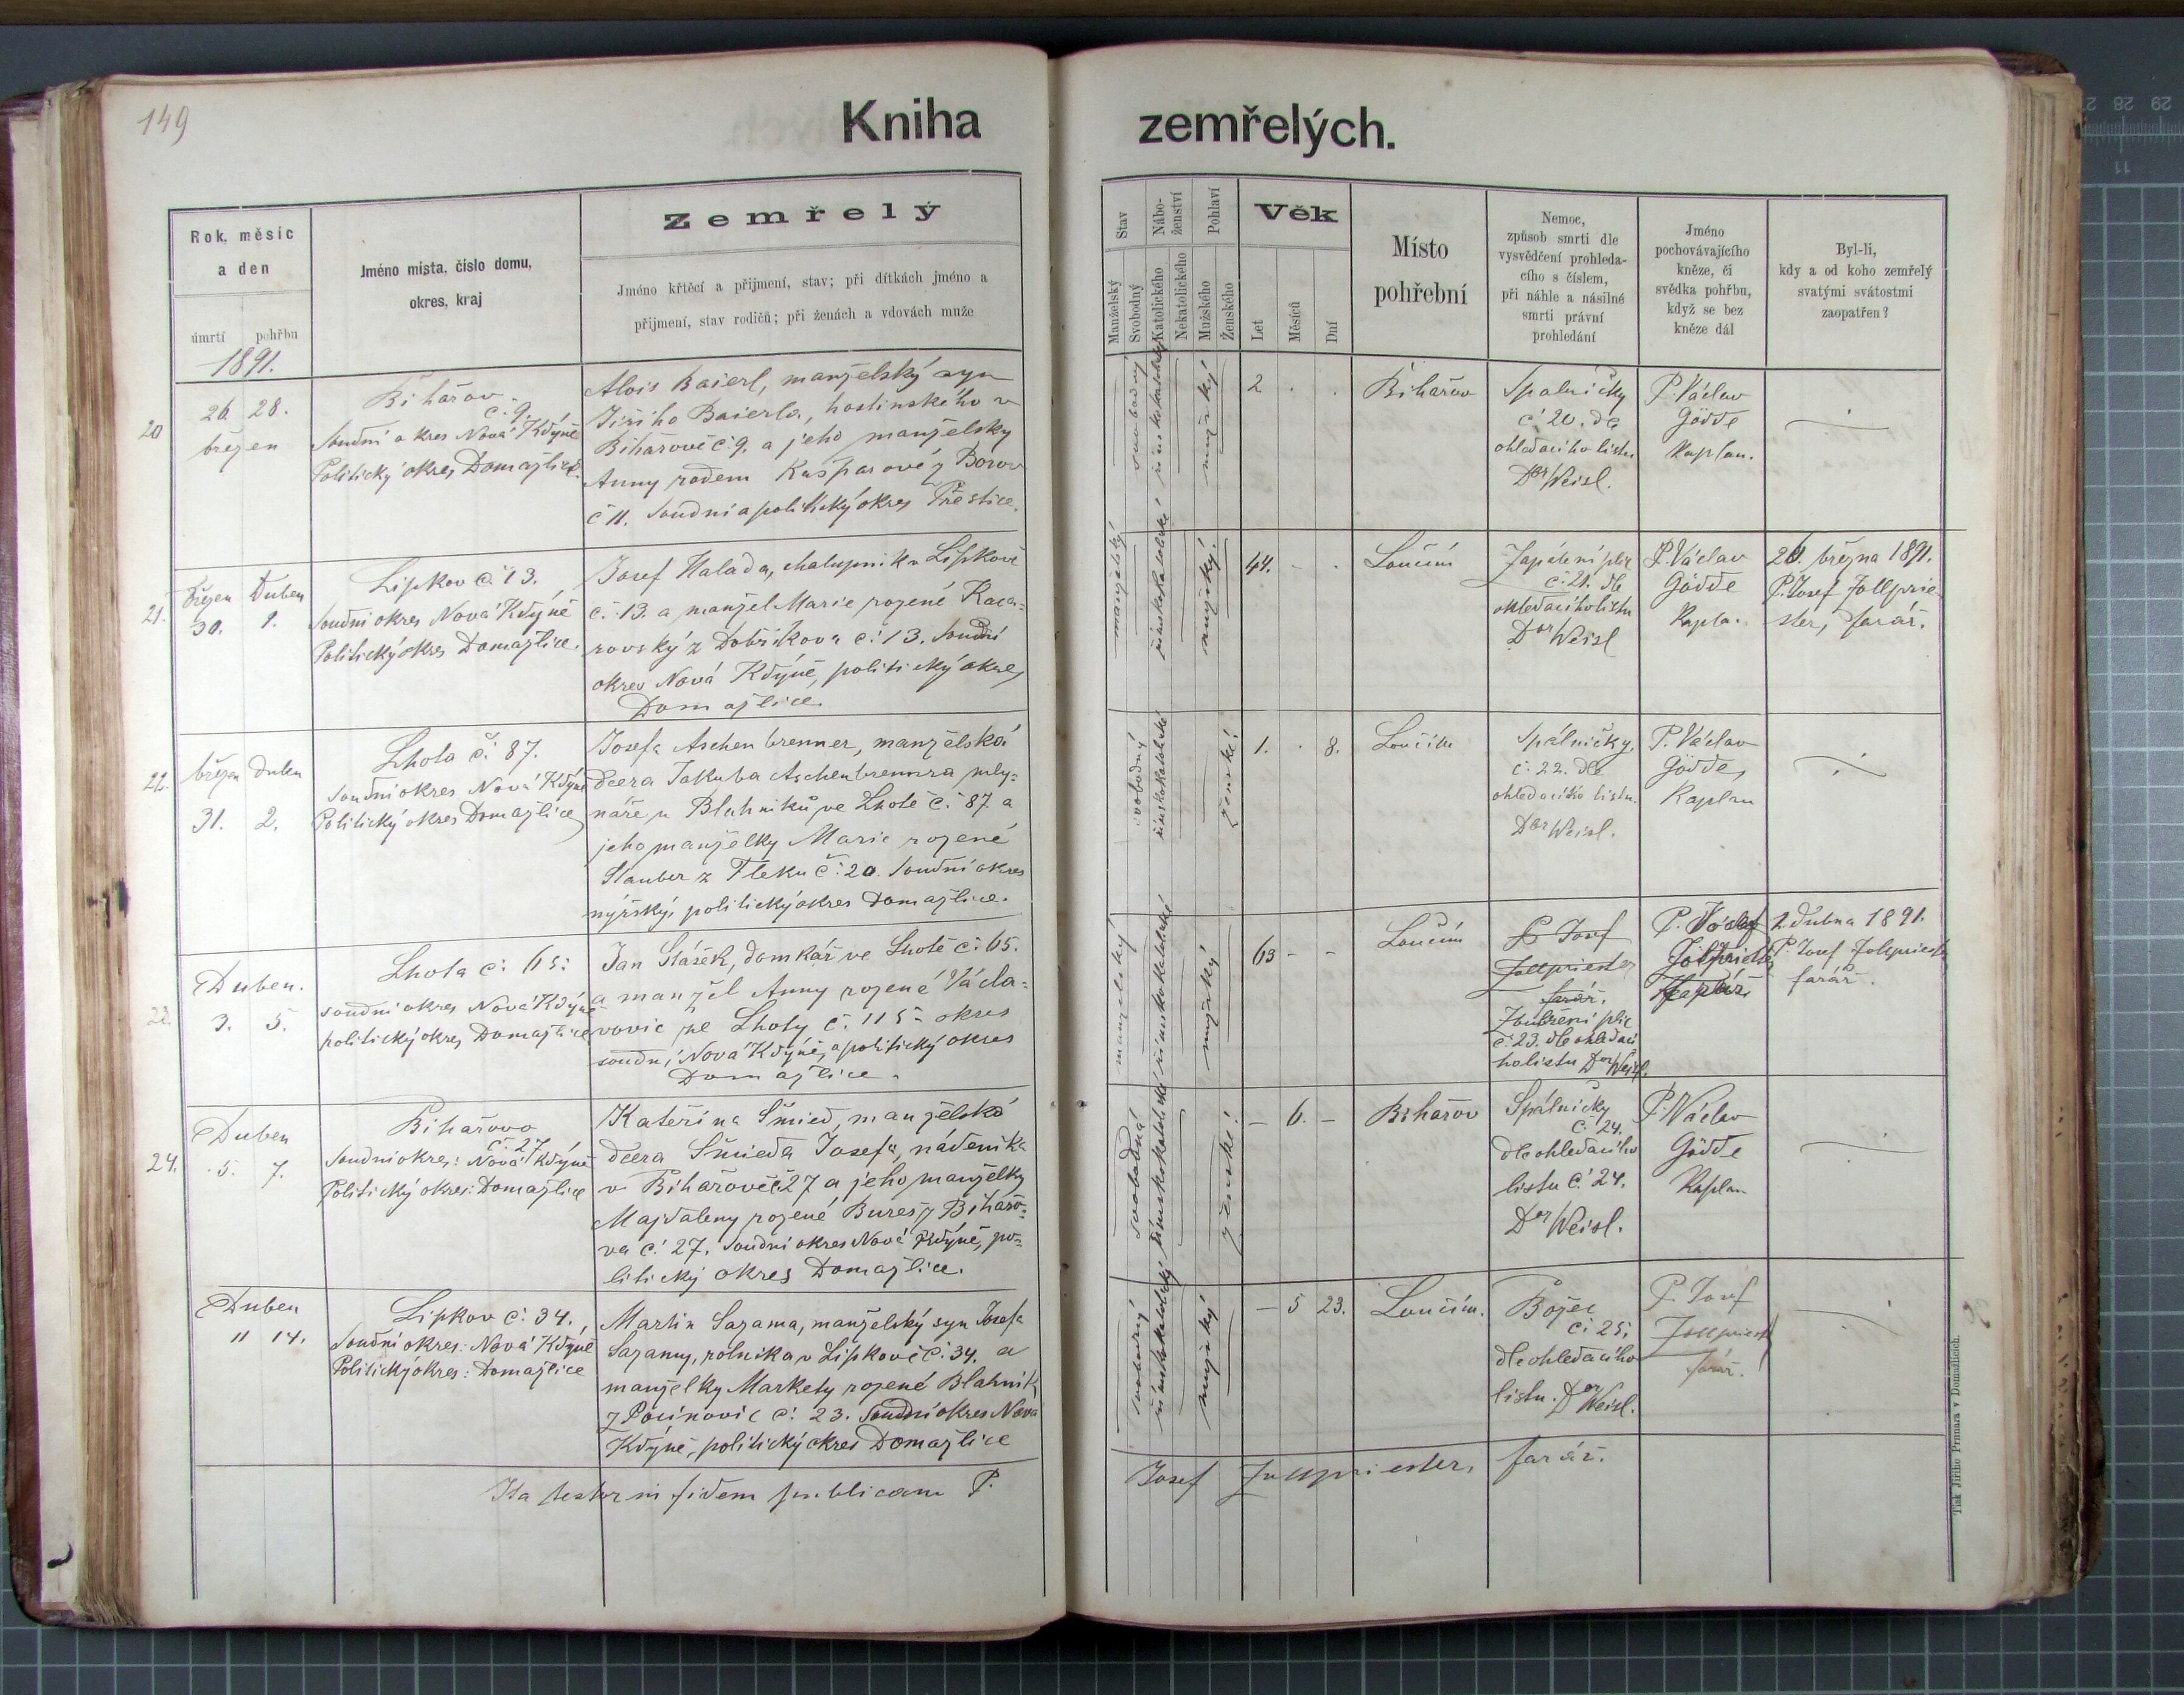 149
Kniha zemřelých.
Rok, měsíc
a den
úmrtí pohřbu
Jméno místa, číslo domu,
okres, kraj
Zemřelý
Jméno křtěcí a přijmení, stav; při dítkách jméno a
přijmení, stav rodičů; při ženách a vdovách muže
Stav
Manželský
Svobodný
Nábo-
ženství
Katolického
Nekatolického
Pohlaví
Mužského
Ženského
Věk
Let
Měsíců
Dní
Místo
pohřební
Nemoc,
způsob smrti dle
vysvědčení prohleda-
cího s číslem,
při náhle a násilné
smrti právní
prohledání
Jméno
pochovávajícího
kněze, či
svědka pohřbu,
když se bez
kněze dál
Byl-li,
kdy a od koho zemřelý
svatými svátostmi
zaopatřen?
1891.
20
26. 28.
březen
Bihářov
č. 9.
Soudní okres Nová Kdýně
Politický okres Domažlice
Alois Baierl, manželský syn
Jiřího Baierla, hostinského v
Bihářově č. 9. a jeho manželky
Anny rodem Kašparové z Borov
č 11. Soudní a politický okres Přestice.
svobodný
římskokatolický
mužský
2 . .
Bihářov
Spalničky
č. 20. dle
ohledacího listu
Dor Weisl.
P. Václav
Gödde
Kaplan.
21.
Březen Duben
30. 1.
Lipkov č. 13.
Soudní okres Nová Kdýně
Politický okres Domažlice.
Josef Halada, chalupník v Lipkově
č. 13. a manžel Marie rozené Kaca-
rovský z Dobříkova č. 13. Soudní
okres Nová Kdýně, politický okres
Domažlice.
manželský
římskokatolické
mužský.
44. - .
Loučím
Zapálení plic
č. 21. dle
ohledacího listu
Dor Weisl
P. Václav
Gödde
Kapla.
P. Josef Zollprie
ster, farář.
22.
březen duben
31. 2.
Lhota č. 87.
Soudní okres Nová Kdýně
Politický okres Domažlice
Josefa Aschenbrenner, manželská
dcera Jakuba Aschenbrennra mly-
náře u Blahníků ve Lhotě č. 87 a
jeho manželky Marie rozené
Stauber z Fleku č. 20. Soudní okres
nýrský, politický okres Domažlice.
svobodný
římskokatolické
ženské.
1. . 8.
Loučím
Spálničky.
č. 22. dle
ohledacího listu.
Dor Weisl.
P. Václav
Gödde,
Kaplan
23.
Duben.
3. 5.
Lhota č. 65.
soudní okres Nová Kdýně
politický okres Domažlice
domkář ve Lhotě č. 65.
a manžel Anny rozené Václa-
vovic ze Lhoty č. 115 okres
soudní Nová Kdýně, a politický okres
Domažlice.
manželský
římskokatolické
mužský
63 - -
Loučím
P. Josef
Zollpriester
farář.
plic
č. 23. dle ohledací
holistu Dor Weisl.
P.
Zollpriester
2. dubna 1891.
P. Josef Zollpriester
farář.
24.
Duben
5. 7.
Bihářovo
č. 27
Soudní okres: Nová Kdýně
Politický okres: Domažlice
Kateřina Šmied, manželská
dcera Šmieda Josefa, nádeníka
v Bihářově č. 27 a jeho manželky
Majdaleny rozené Bureš z Bihářo-
va č. 27. Soudní okres Nová Kdýně, po-
litický okres Domažlice.
svobodná
římskokatolické
ženské.
- 6. -
Bihářov
Spálničky
č. 24.
dle ohledacího
listu č. 24.
Dor Weisl.
P. Václav
Gödde
Kaplan
Duben
11 14.
Lipkov č. 34.,
Soudní okres: Nová Kdýně
Politický okres: Domažlice
Martin Sazama, manželský syn Josefa
Sazamy, rolníka v Lipkově č. 34. a
manželky Markety rozené Blahník
z Pocinovic č. 23. Soudní okres Nová
Kdýně, politický okres Domažlice
svobodný
římskokatolický
mužský
- 5 23.
Loučím.
Božec
č. 25.
dle ohledacího
listu. Dor Weisl.
P. Josef
Zollpriester
farář.
Ita testor ni fidem publicam P.
Josef Zollpriester, farář.
Tisk Jiřího Prunara v Domažlicích.